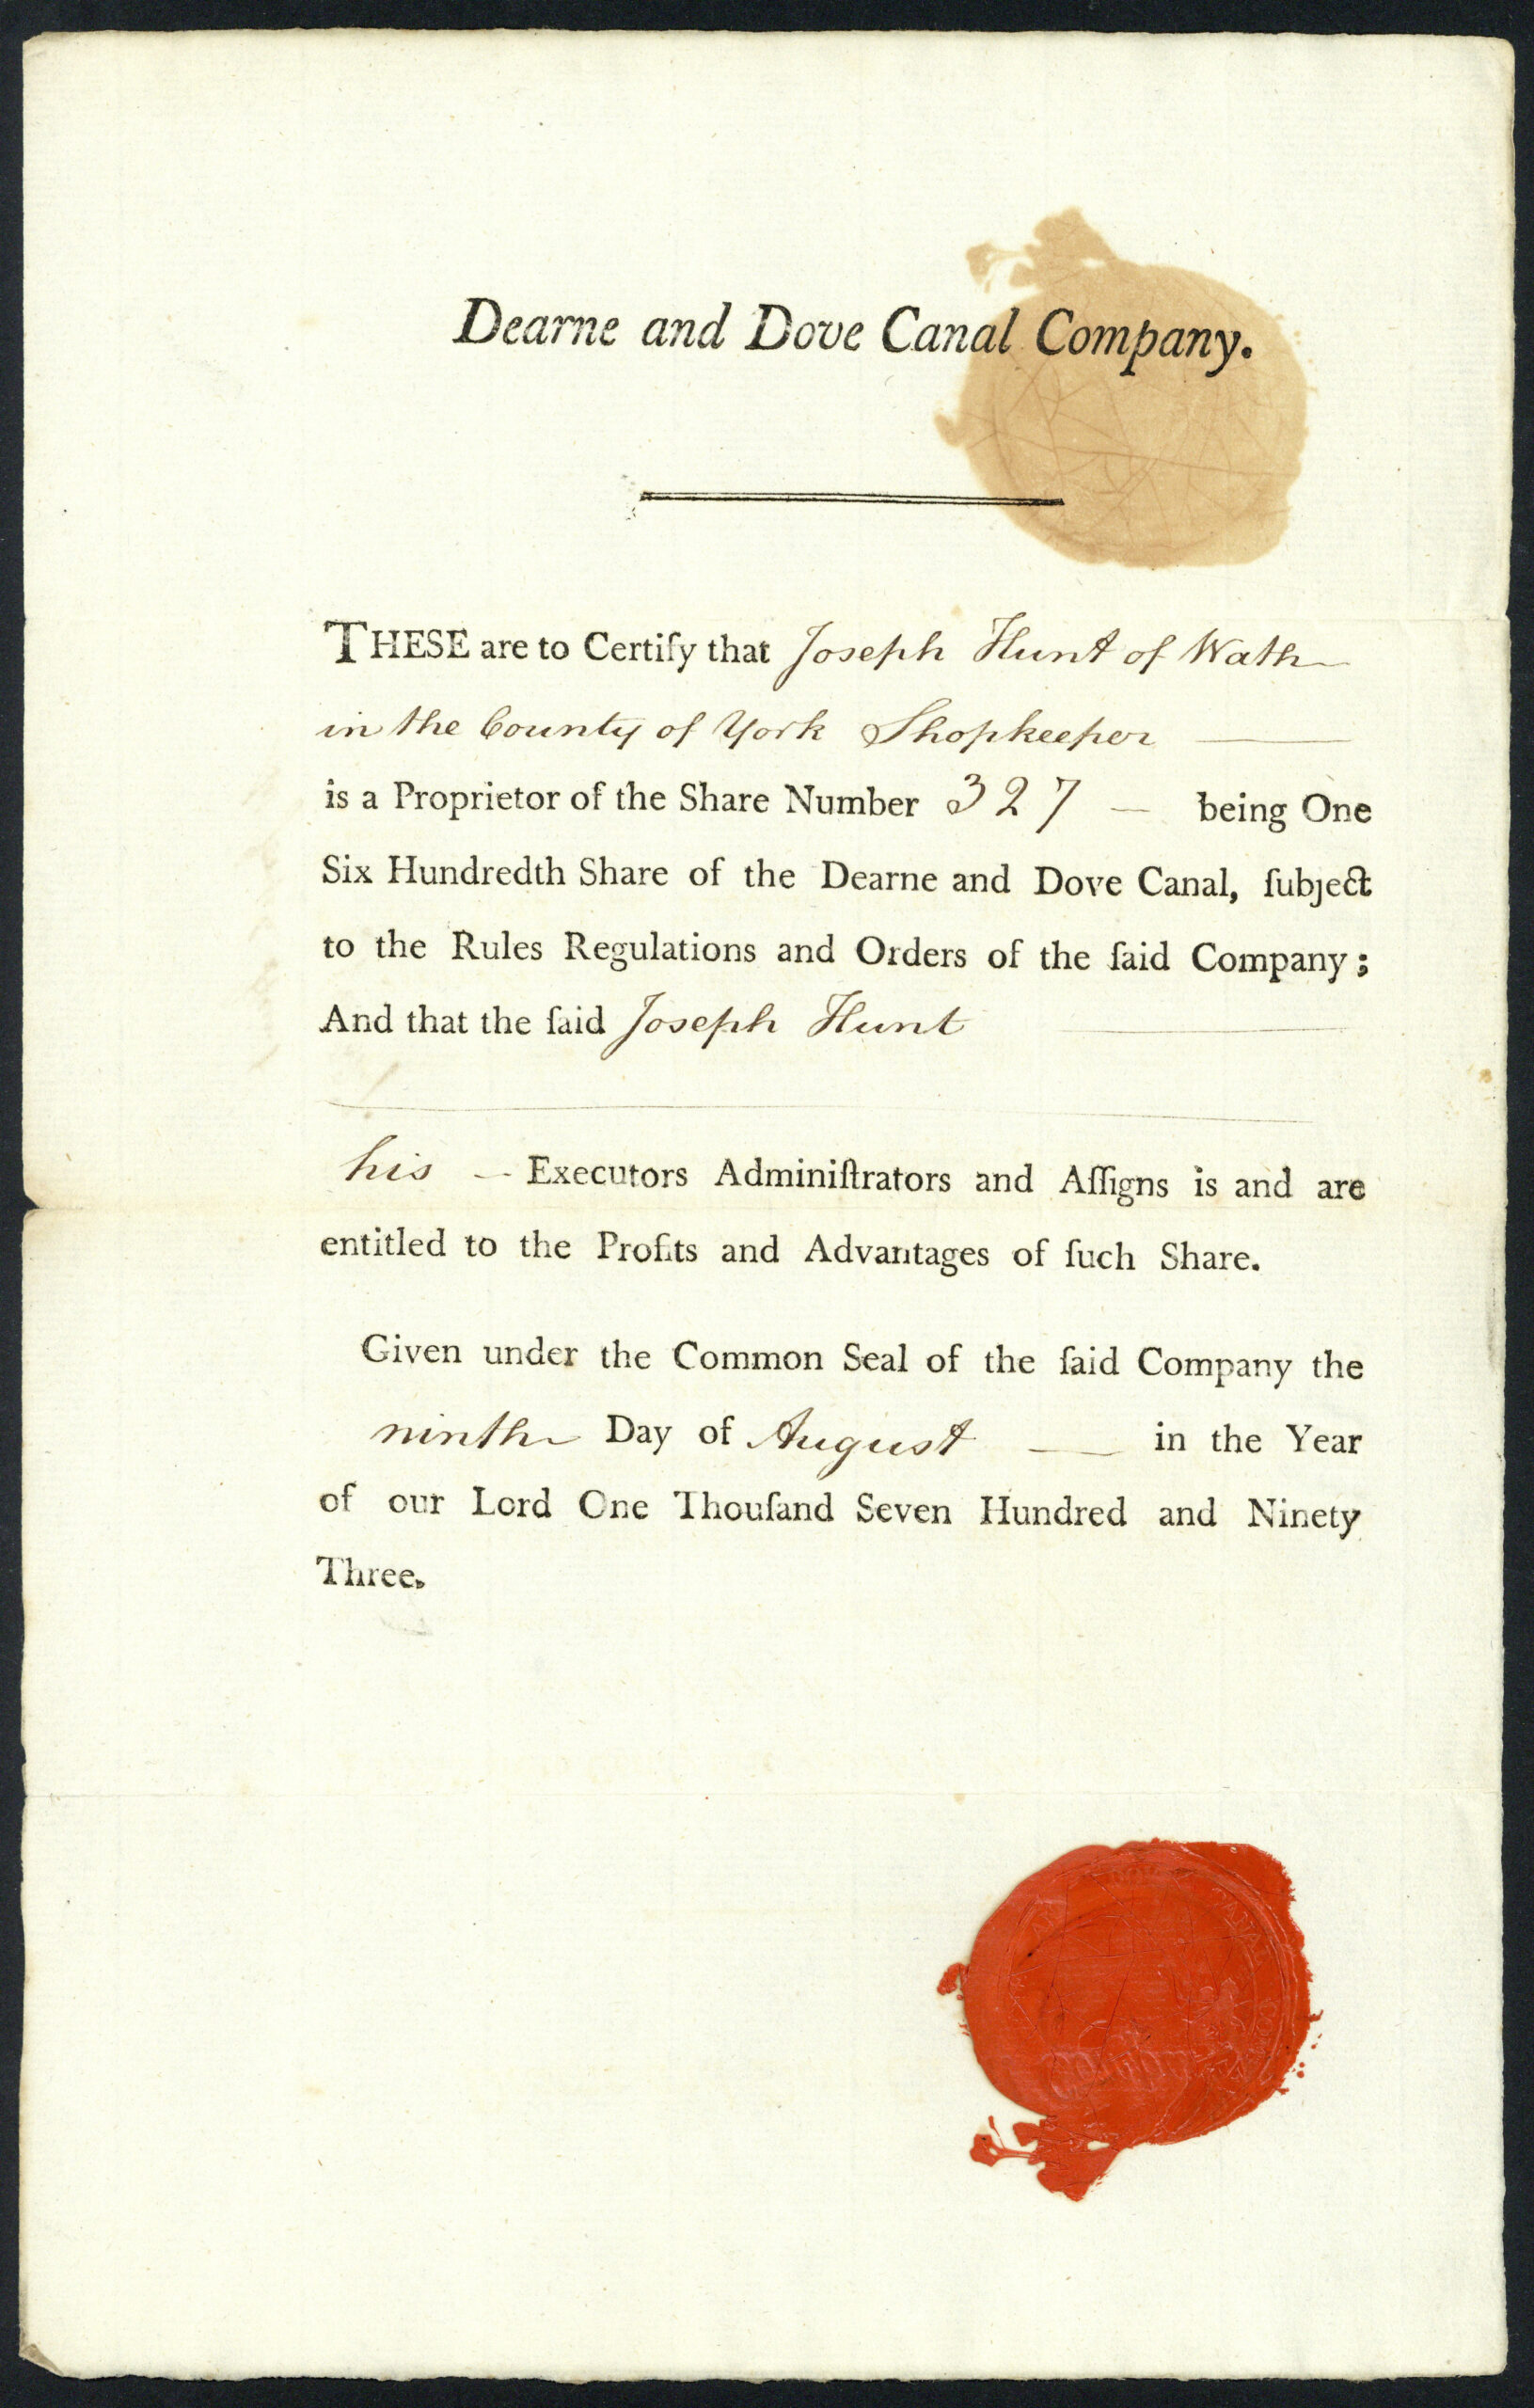 Dearne and Dove Canal Company.
THESE are to Certify that Joseph Hunt of Wath
in the County of York Shopkeeper
is a Proprietor of the Share Number 327 — being One
Six Hundredth Share of the Dearne and Dove Canal, ſubject
to the Rules Regulations and Orders of the ſaid Company;
And that the ſaid Joseph Hunt
his — Executors Adminiſtrators and Aſſigns is and are
entitled to the Profits and Advantages of ſuch Share.
Given under the Common Seal of the ſaid Company the
ninth Day of August — in the Year
of our Lord One Thouſand Seven Hundred and Ninety
Three.
CANAL